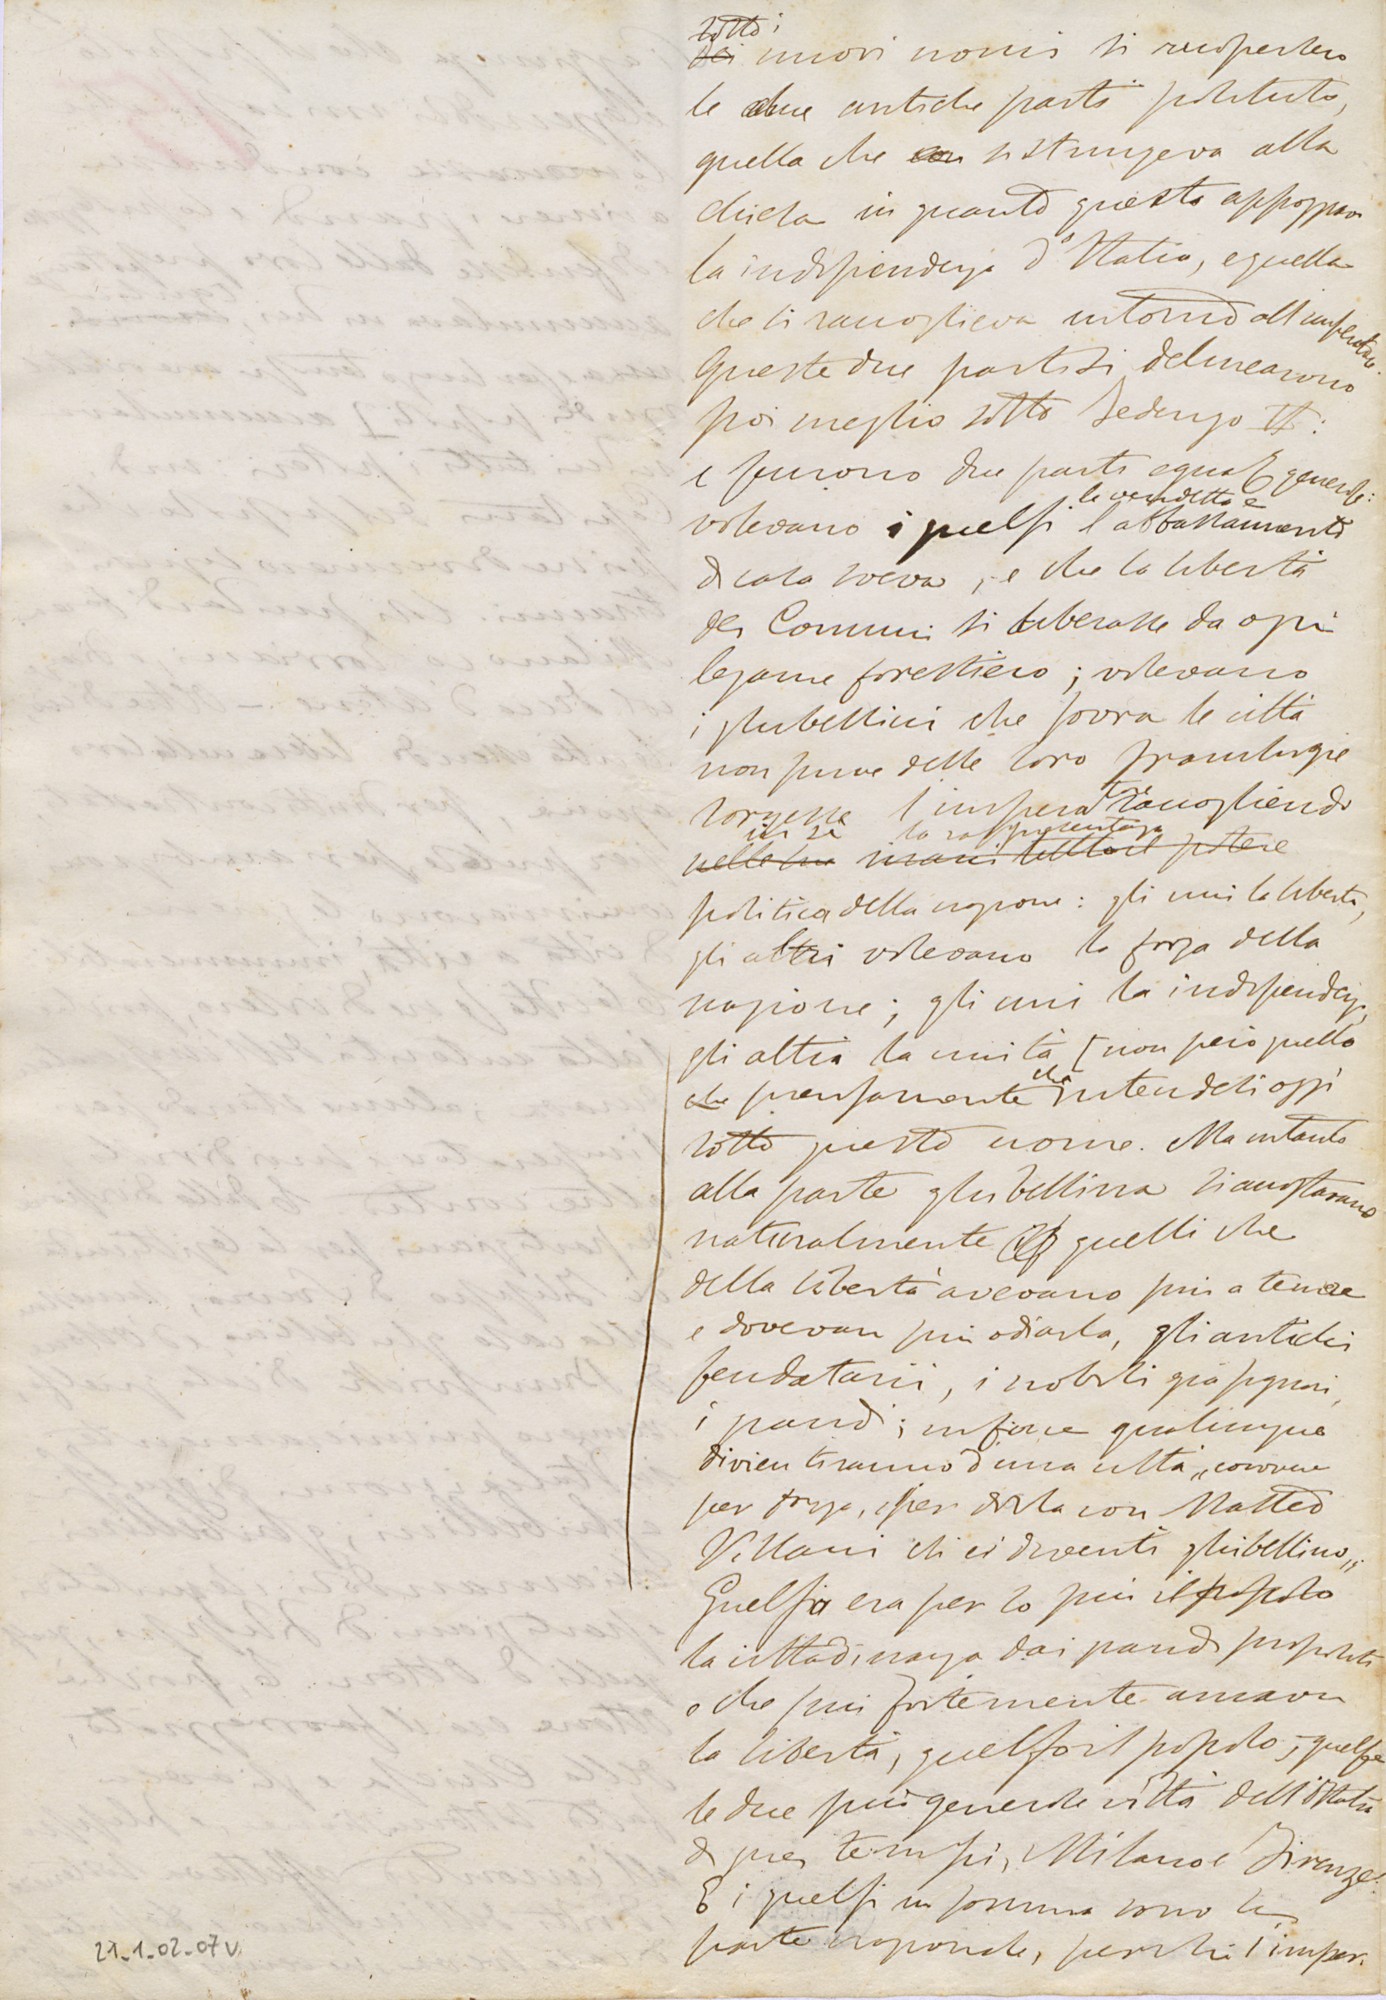 sotto i
dei nuovi nomi si ricopersero
le due antiche parti politiche,
quella che con si stringeva alla
chiesa in quanto questa appoggiava
la indipendenza d'Italia, e quella
che si raccoglieva intorno all'imperatore.
Queste due parti si delinearono
poi meglio sotto Federigo II:
e furono due parti egual generose:
le vendette e
volevano i guelfi l'abbassamento
di casa sveva, e che la libertà
dei Comuni si liberasse da ogni
legame forestiero; volevano
i ghibellini che sovra le città
non prive delle loro franchigie
sorgesse l'imperatore raccogliendo
in sè la rappresentanza
nelle sue mani tutto il potere
politica della nazione: gli uni la libertà,
gli altri volevano la forza della
nazione; gli uni la indipendenza,
gli altri la unità [non però quello
che
che precisamente intendesi oggi
sotto questo nome. Ma intanto
alla parte ghibellina si accostarono
naturalmente quelli che
della libertà avevano più a temere
e dovevan più odiarla, gli antichi
feudatarii, i nobili già signori,
i grandi; infine qualunque
divien tiranno d'una città „conviene
per forza, per dirla con Matteo
Villani ch'ei diventi ghibellino„.
Guelfo era per lo più il popolo
la cittadinanza dai grandi
e che più fortemente amava
la libertà, guelfo il popolo; guelfe
le due più generose città dell'Italia
di quei tempi, Milano e Firenze.
E i guelfi in somma sono la
parte nazionale, perchè l'imper.
21_1_02_07v